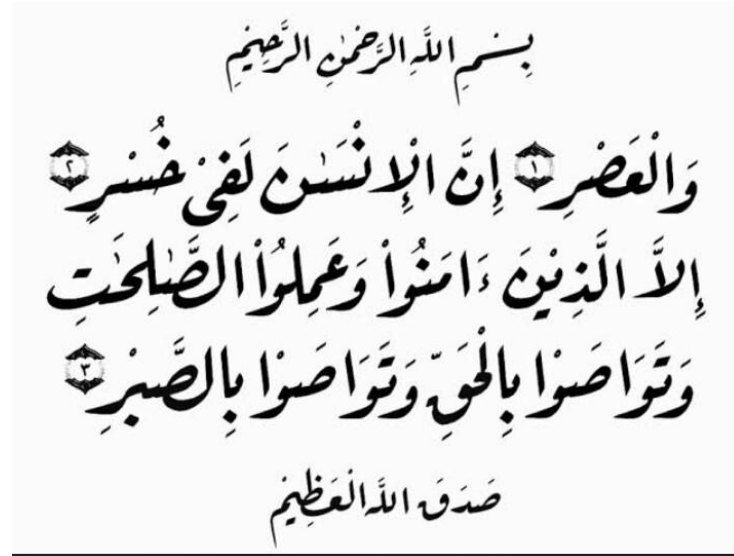 بِسْمِ اللَّهِ الرَّحْمٰنِ الرَّحِيْمِ
وَالْعَصْرِ ١ إِنَّ الْإِنْسَٰنَ لَفِيْ خُسْرٍ ٢
إِلاَّ الَّذِيْنَ ءَامَنُواْ وَعَمِلُواْ الصَّٰلِحَٰتِ
وَتَوَاصَوْا بِالْحَقِّ وَتَوَاصَوْا بِالصَّبْرِ ٣
صَدَقَ اللَّهُ الْعَظِيْمُ